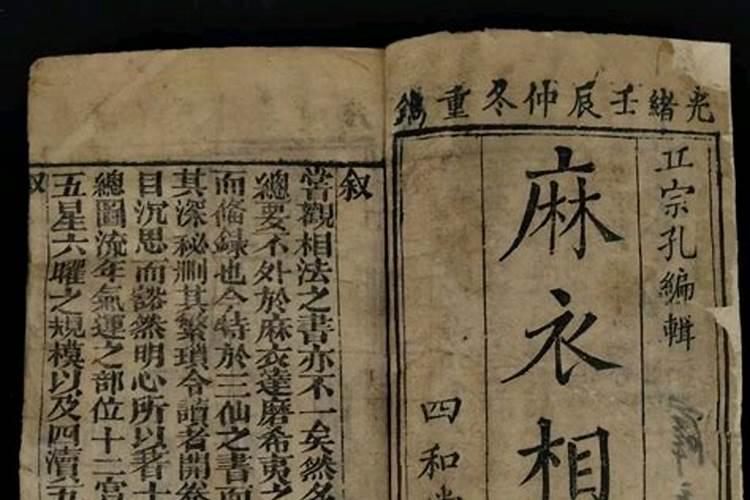 光緒壬辰仲冬重鐫
丘宗孔編輯
麻衣相
四和堂
叙
嘗觀相法之書亦不一矣然名
總要不外於麻衣達磨希夷之
而備録也今特於三仙之書而
其深秘刪其繁瑣令讀者開卷
目沉思而豁然明心所以著十
總圖流年氣運之部位十二宮
五星六曜之規模以及四瀆五
叙